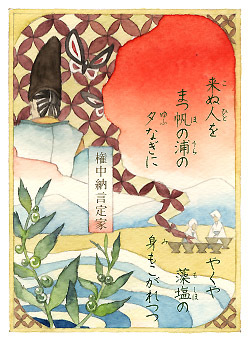 来ぬ人を
まつ帆の浦の
夕なぎに
やくや
藻塩の
身もこがれつつ
権中納言定家